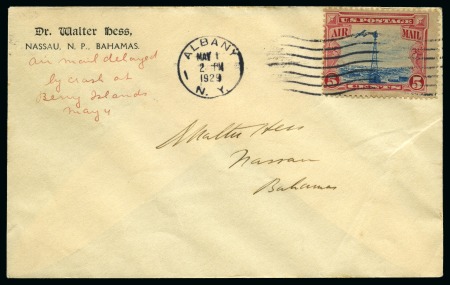 Dr. Walter Hess,
NASSAU, N. P., BAHAMAS.
Air mail delayed
by crash at
Berry Islands
May 4
ALBANY
MAY 1
2-PM
1929
N.Y.
1
U.S. POSTAGE
AIR MAIL
5 5
CENTS
Walter Hess
Nassau
Bahamas